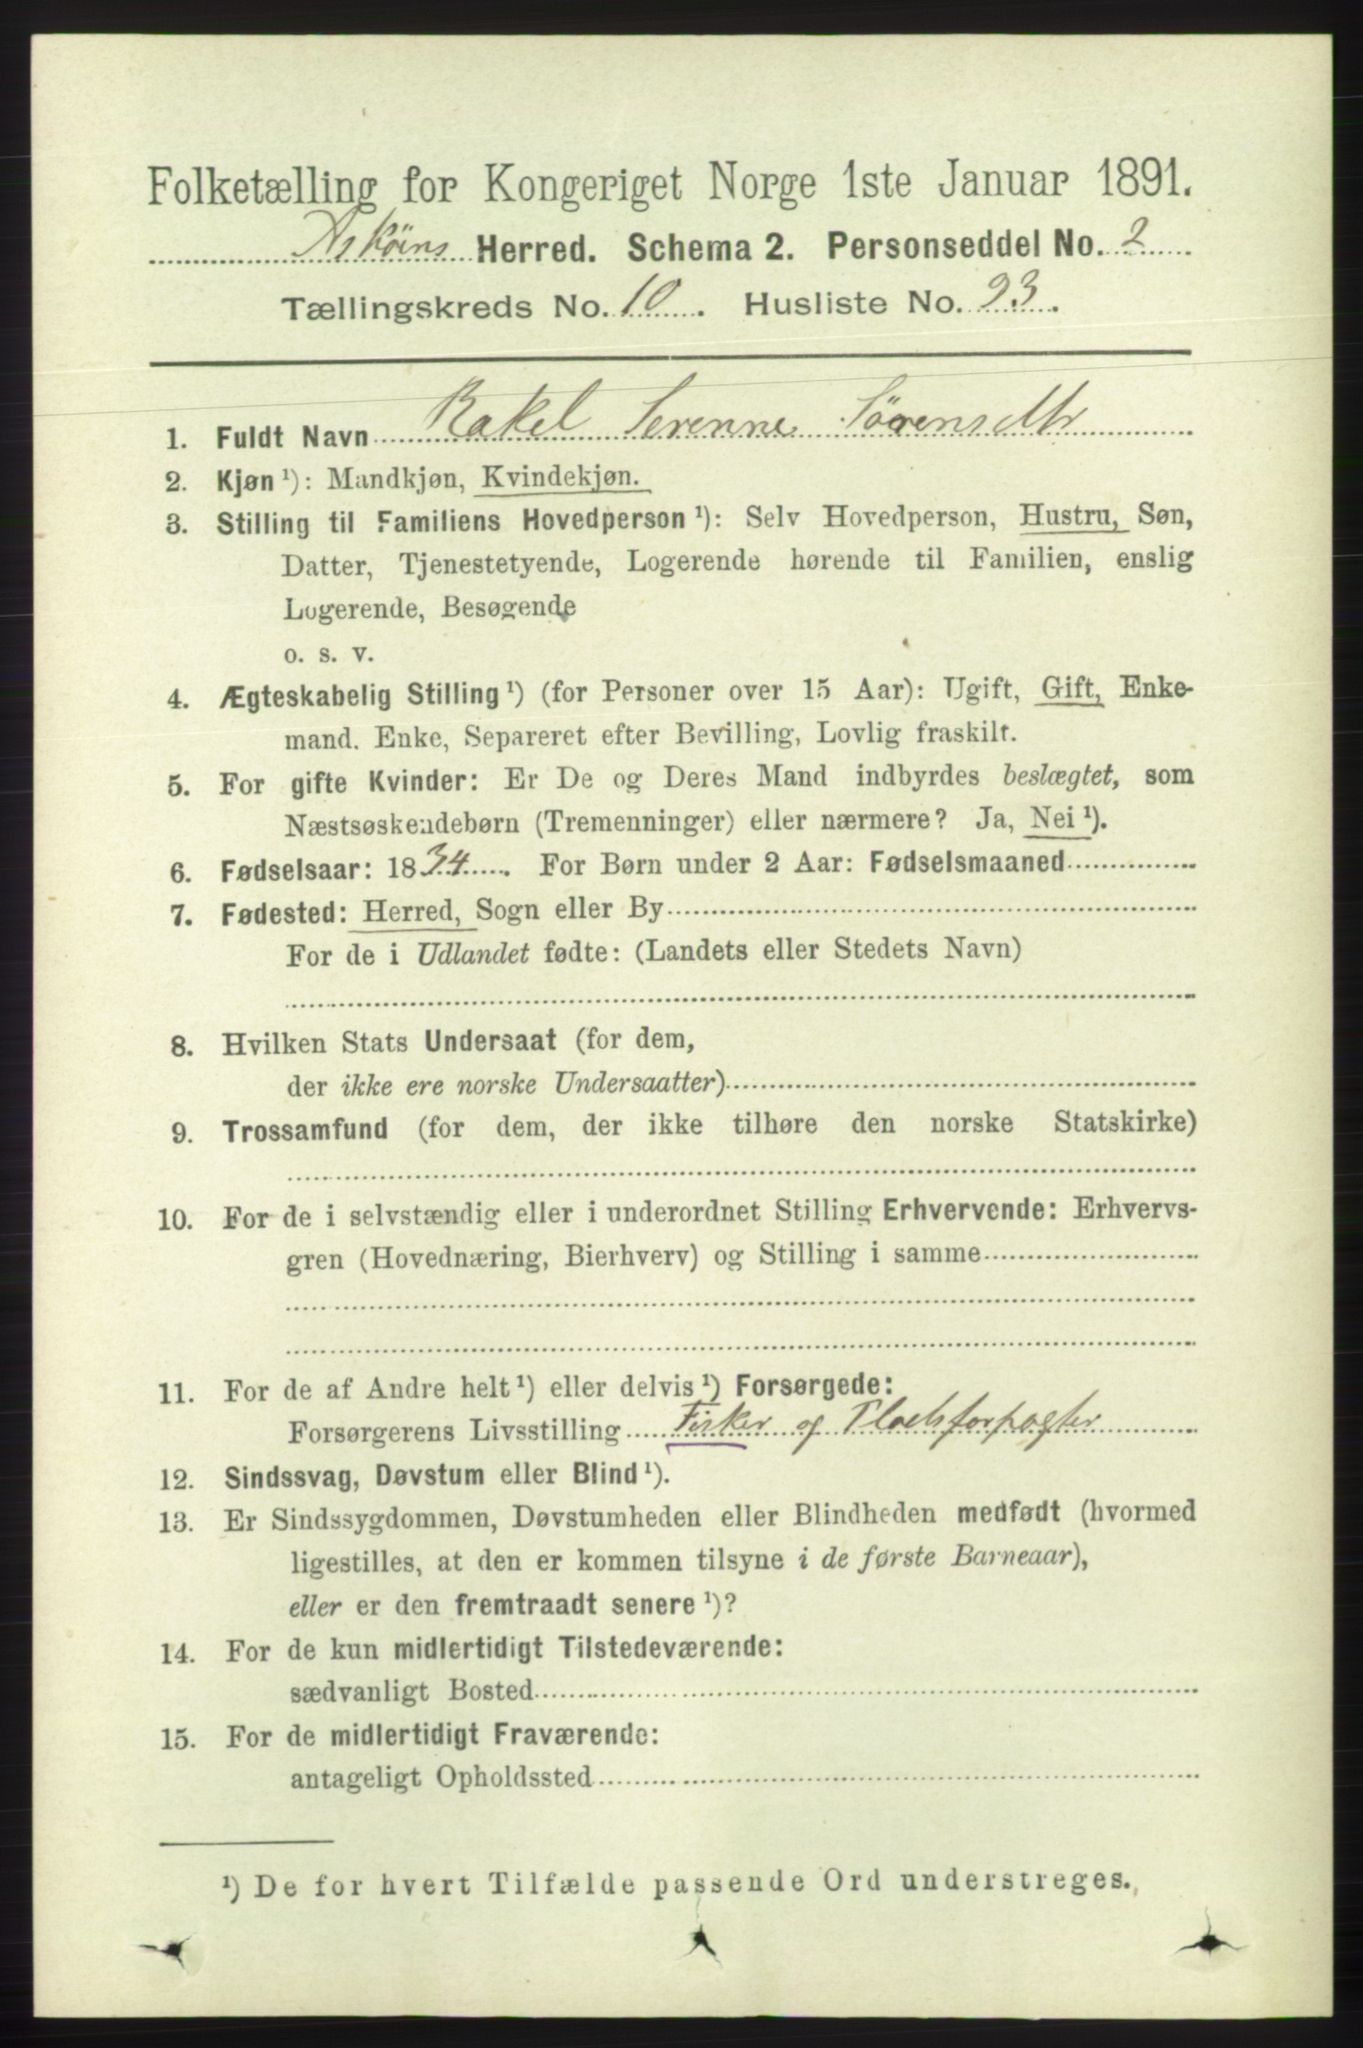 Folketælling for Kongeriget Norge 1ste Januar 1891.
Askøens Herred. Schema 2. Personseddel No. 2
Tællingskreds No. 10. Husliste No. 93.
1. Fuldt Navn Rakel Serenne Sørensdtr
2. Kjøn ¹): Mandkjøn, Kvindekjøn.
3. Stilling til Familiens Hovedperson ¹): Selv Hovedperson, Hustru, Søn,
Datter, Tjenestetyende, Logerende hørende til Familien, enslig
Logerende, Besøgende
o. s. v.
4. Ægteskabelig Stilling ¹) (for Personer over 15 Aar): Ugift, Gift, Enke-
mand. Enke, Separeret efter Bevilling, Lovlig fraskilt.
5. For gifte Kvinder: Er De og Deres Mand indbyrdes beslægtet, som
Næstsøskendebørn (Tremenninger) eller nærmere? Ja, Nei ¹).
6. Fødselsaar: 1834. For Børn under 2 Aar: Fødselsmaaned
7. Fødested: Herred, Sogn eller By
For de i Udlandet fødte: (Landets eller Stedets Navn)
8. Hvilken Stats Undersaat (for dem,
der ikke ere norske Undersaatter)
9. Trossamfund (for dem, der ikke tilhøre den norske Statskirke)
10. For de i selvstændig eller i underordnet Stilling Erhvervende: Erhvervs-
gren (Hovednæring, Bierhverv) og Stilling i samme
11. For de af Andre helt ¹) eller delvis ¹) Forsørgede:
Forsørgerens Livsstilling Fisker og Pladsforpagter
12. Sindssvag, Døvstum eller Blind ¹).
13. Er Sindssygdommen, Døvstumheden eller Blindheden medfødt (hvormed
ligestilles, at den er kommen tilsyne i de første Barneaar),
eller er den fremtraadt senere ¹)?
14. For de kun midlertidigt Tilstedeværende:
sædvanligt Bosted
15. For de midlertidigt Fraværende:
antageligt Opholdssted
¹) De for hvert Tilfælde passende Ord understreges.